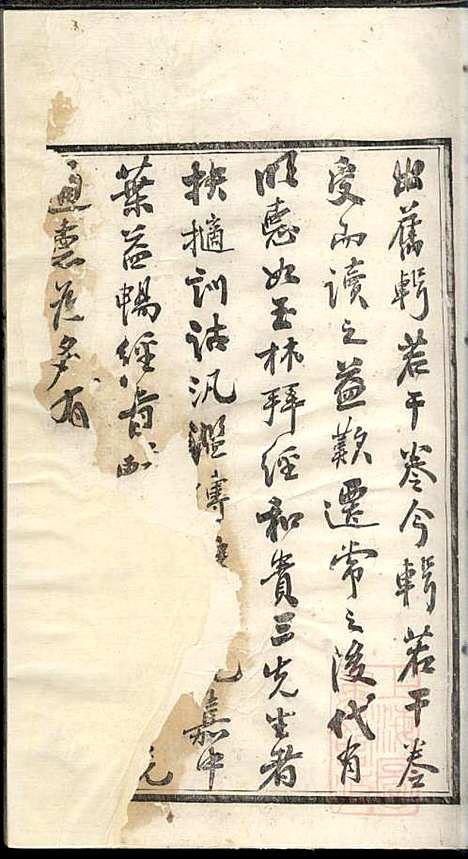 出舊輯若干卷今輯若干卷
受而讀之益歎遷常之後代有
明德如玉林拜經和貴三先生者
抉擿訓詁汎濫傳 嘉中
葉益暢經旨
通 爲多有